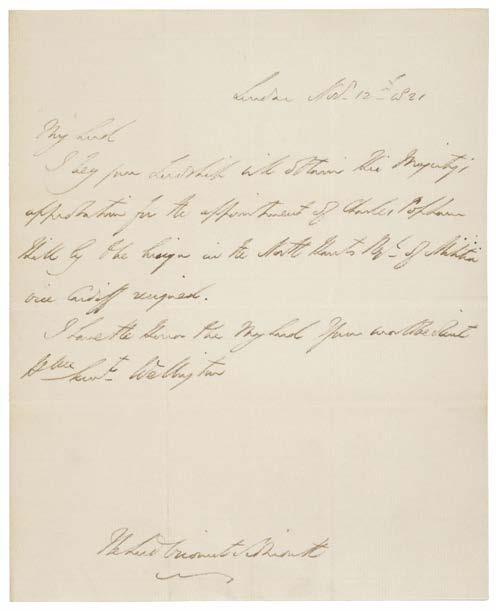 London Nov. 12th 1821
My Lord
I beg your Lordship will obtain His Majesty's
approbation for the appointment of Charles Popham
Hill to be Ensign in the North Hants Regt. of Militia
vice resigned.
I have the Honor to be My Lord Your most Obedient
Hble Servt. Wellington
The Lord Viscount Sidmouth